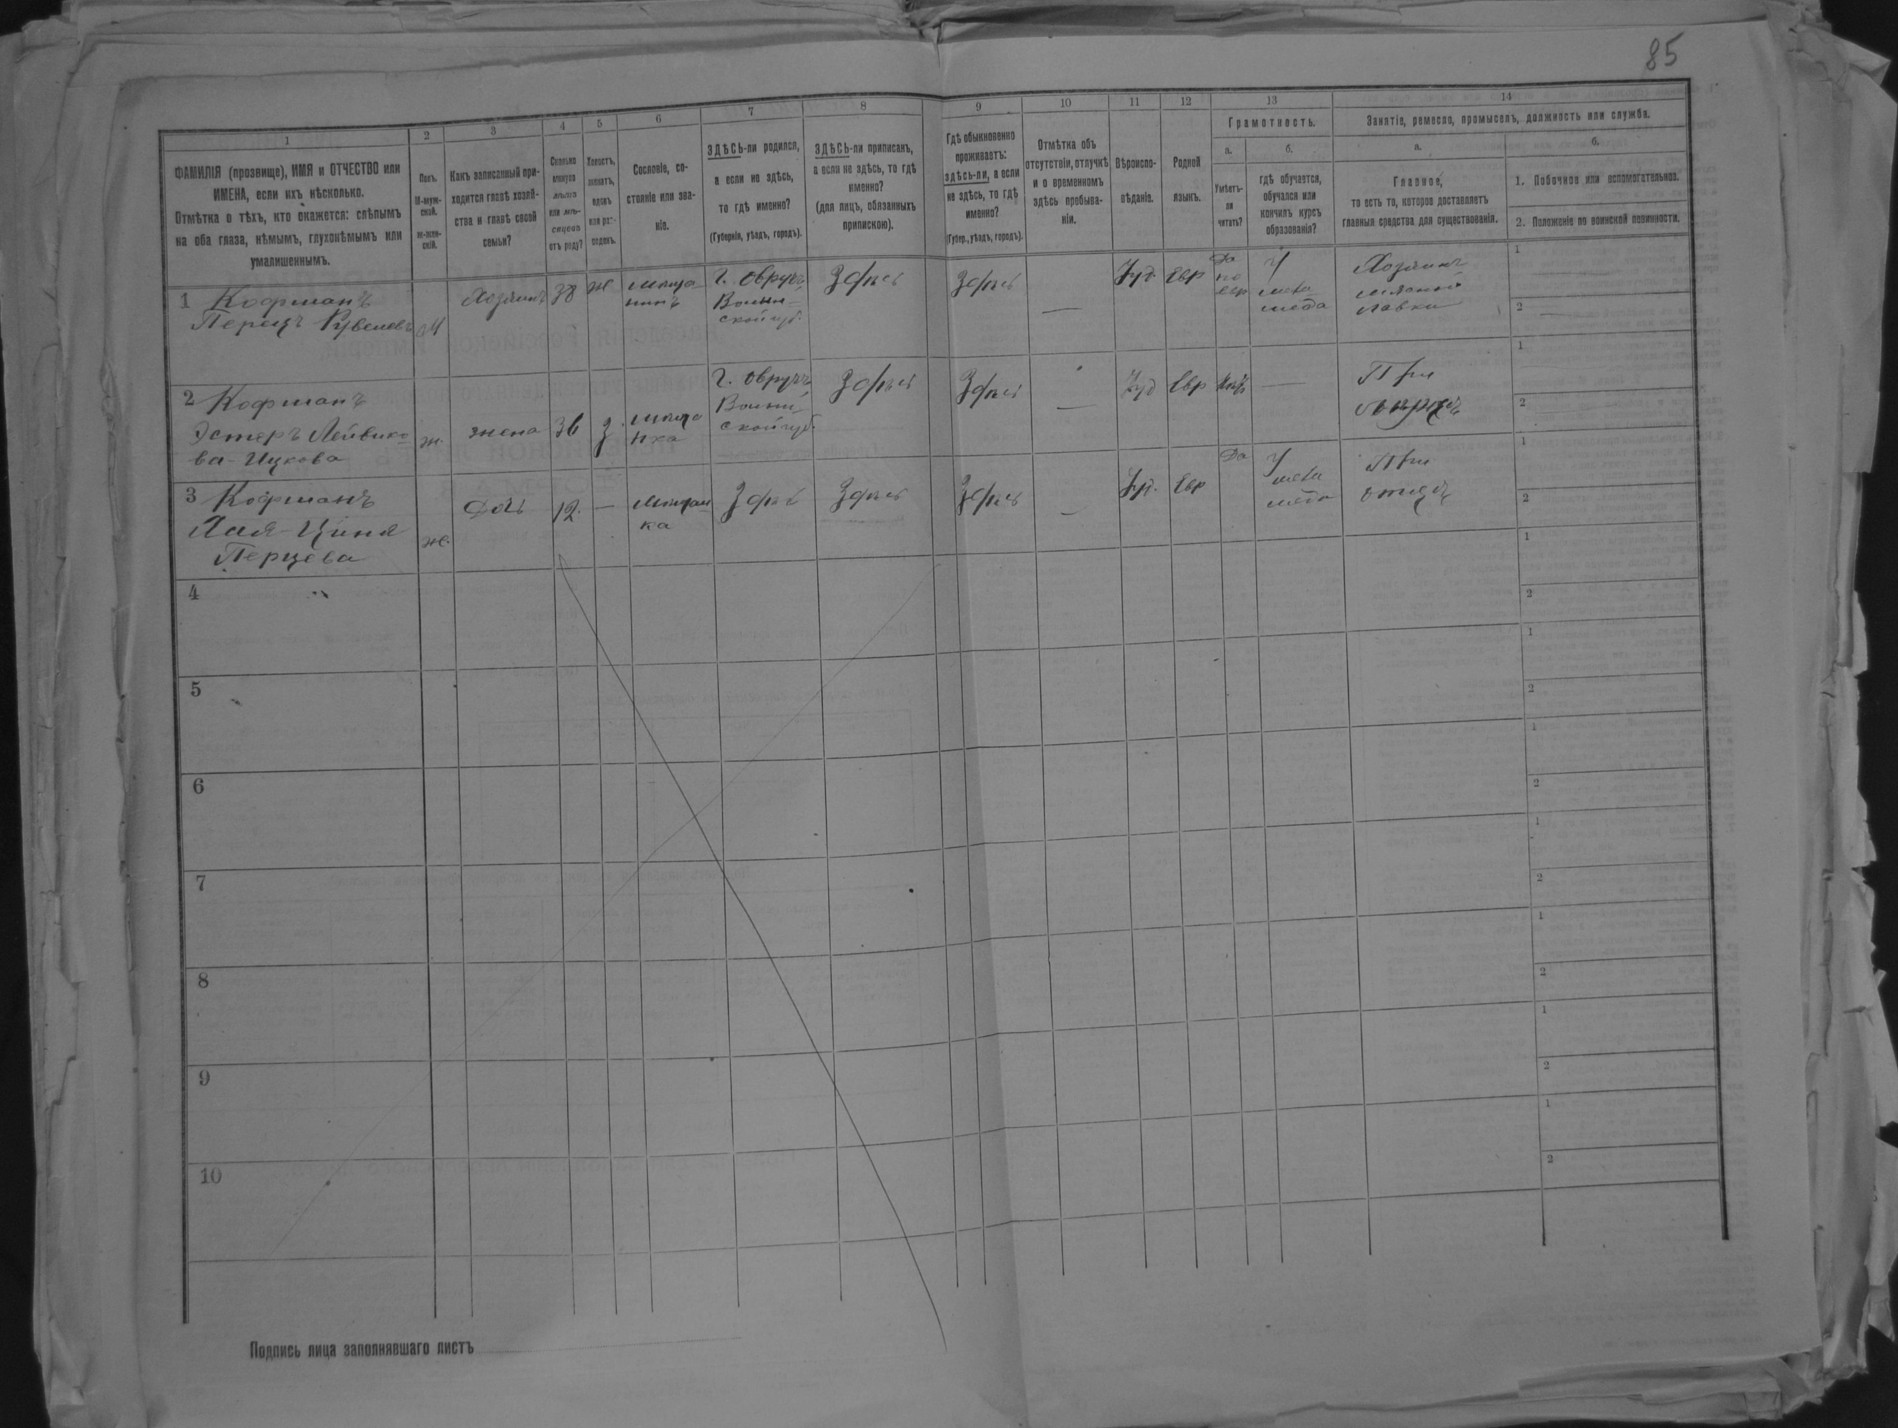 85
1
2
3
4
5
6
7
8
9
10
11
12
13
14
ФАМИЛІЯ (прозвище), ИМЯ и ОТЧЕСТВО или
ИМЕНА, если ихъ нѣсколько.
Отмѣтка о тѣхъ, кто окажется: слѣпымъ
на оба глаза, нѣмымъ, глухонѣмымъ или
умалишеннымъ.
Полъ.
М-муж-
ской.
ж-жен-
скій.
Какъ записанный при-
ходится главѣ хозяй-
ства и главѣ своей
семьи?
Сколько
минуло
лѣтъ
или мѣ-
сяцевъ
отъ роду?
Холостъ,
женатъ,
вдовъ
или раз-
веденъ.
Сословіе, со-
стояніе или зва-
ніе.
ЗДѢСЬ-ли родился,
а если не здѣсь,
то гдѣ именно?
(Губернія, уѣздъ, городъ).
ЗДѢСЬ-ли приписанъ,
а если не здѣсь, то гдѣ
именно?
(для лицъ, обязанныхъ
припискою).
Гдѣ обыкновенно
проживаетъ:
здѣсь-ли, а если
не здѣсь, то гдѣ
именно?
(Губер., уѣздъ, городъ).
Отмѣтка объ
отсутствіи, отлучкѣ
и о временномъ
здѣсь пребыва-
ніи.
Вѣроиспо-
вѣданіе.
Родной
языкъ.
Грамотность.
а.
Умѣетъ-
ли
читать?
б.
гдѣ обучается,
обучался или
кончилъ курсъ
образованія?
Занятіе, ремесло, промыселъ, должность или служба.
а.
Главное,
то есть то, которое доставляетъ
главныя средства для существованія.
б.
1. Побочное или вспомогательное.
2. Положеніе по воинской повинности.
1 Кофманъ
Перецъ Рувеневъ
М
Хозяинъ
38
ж
мѣща
нинъ
г. Овручъ
Волын-
ской губ.
Здѣсь
Здѣсь
—
Іуд.
Евр
Да
по
евр
У
мела
меда
Хозяинъ
мясной
лавки
1
2
2 Кофманъ
Эстеръ Лейвико-
ва-Ицкова
ж.
жена
36
з.
мѣща
нка
г. Овручъ
Волын-
ской губ.
Здѣсь
Здѣсь
—
Іуд
Евр
Нѣтъ
—
При
мужѣ
1
2
3 Кофманъ
Хая-Циня
Перцева
ж.
Дочь
12.
—
Мѣщан
ка
Здѣсь
Здѣсь
Здѣсь
—
Іуд.
Евр
Да
У
мела
меда
При
отцѣ
1
2
4
1
2
5
1
2
6
1
2
7
1
2
8
1
2
9
1
2
10
1
2
Подпись лица заполнявшаго листъ